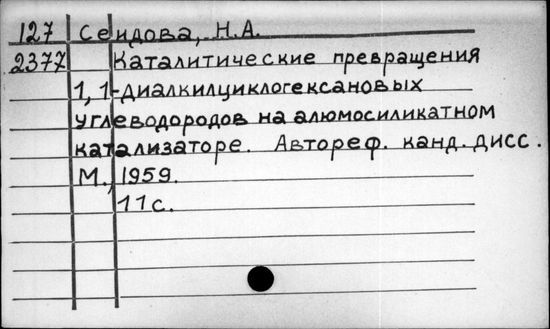 127 Сеидова, Н.А.
2377 Каталитические превращения
1,1-диалкилциклогексановых
углеводородов на алюмосиликатном
катализаторе. Автореф. канд. дисс.
М., 1959.
11 с.